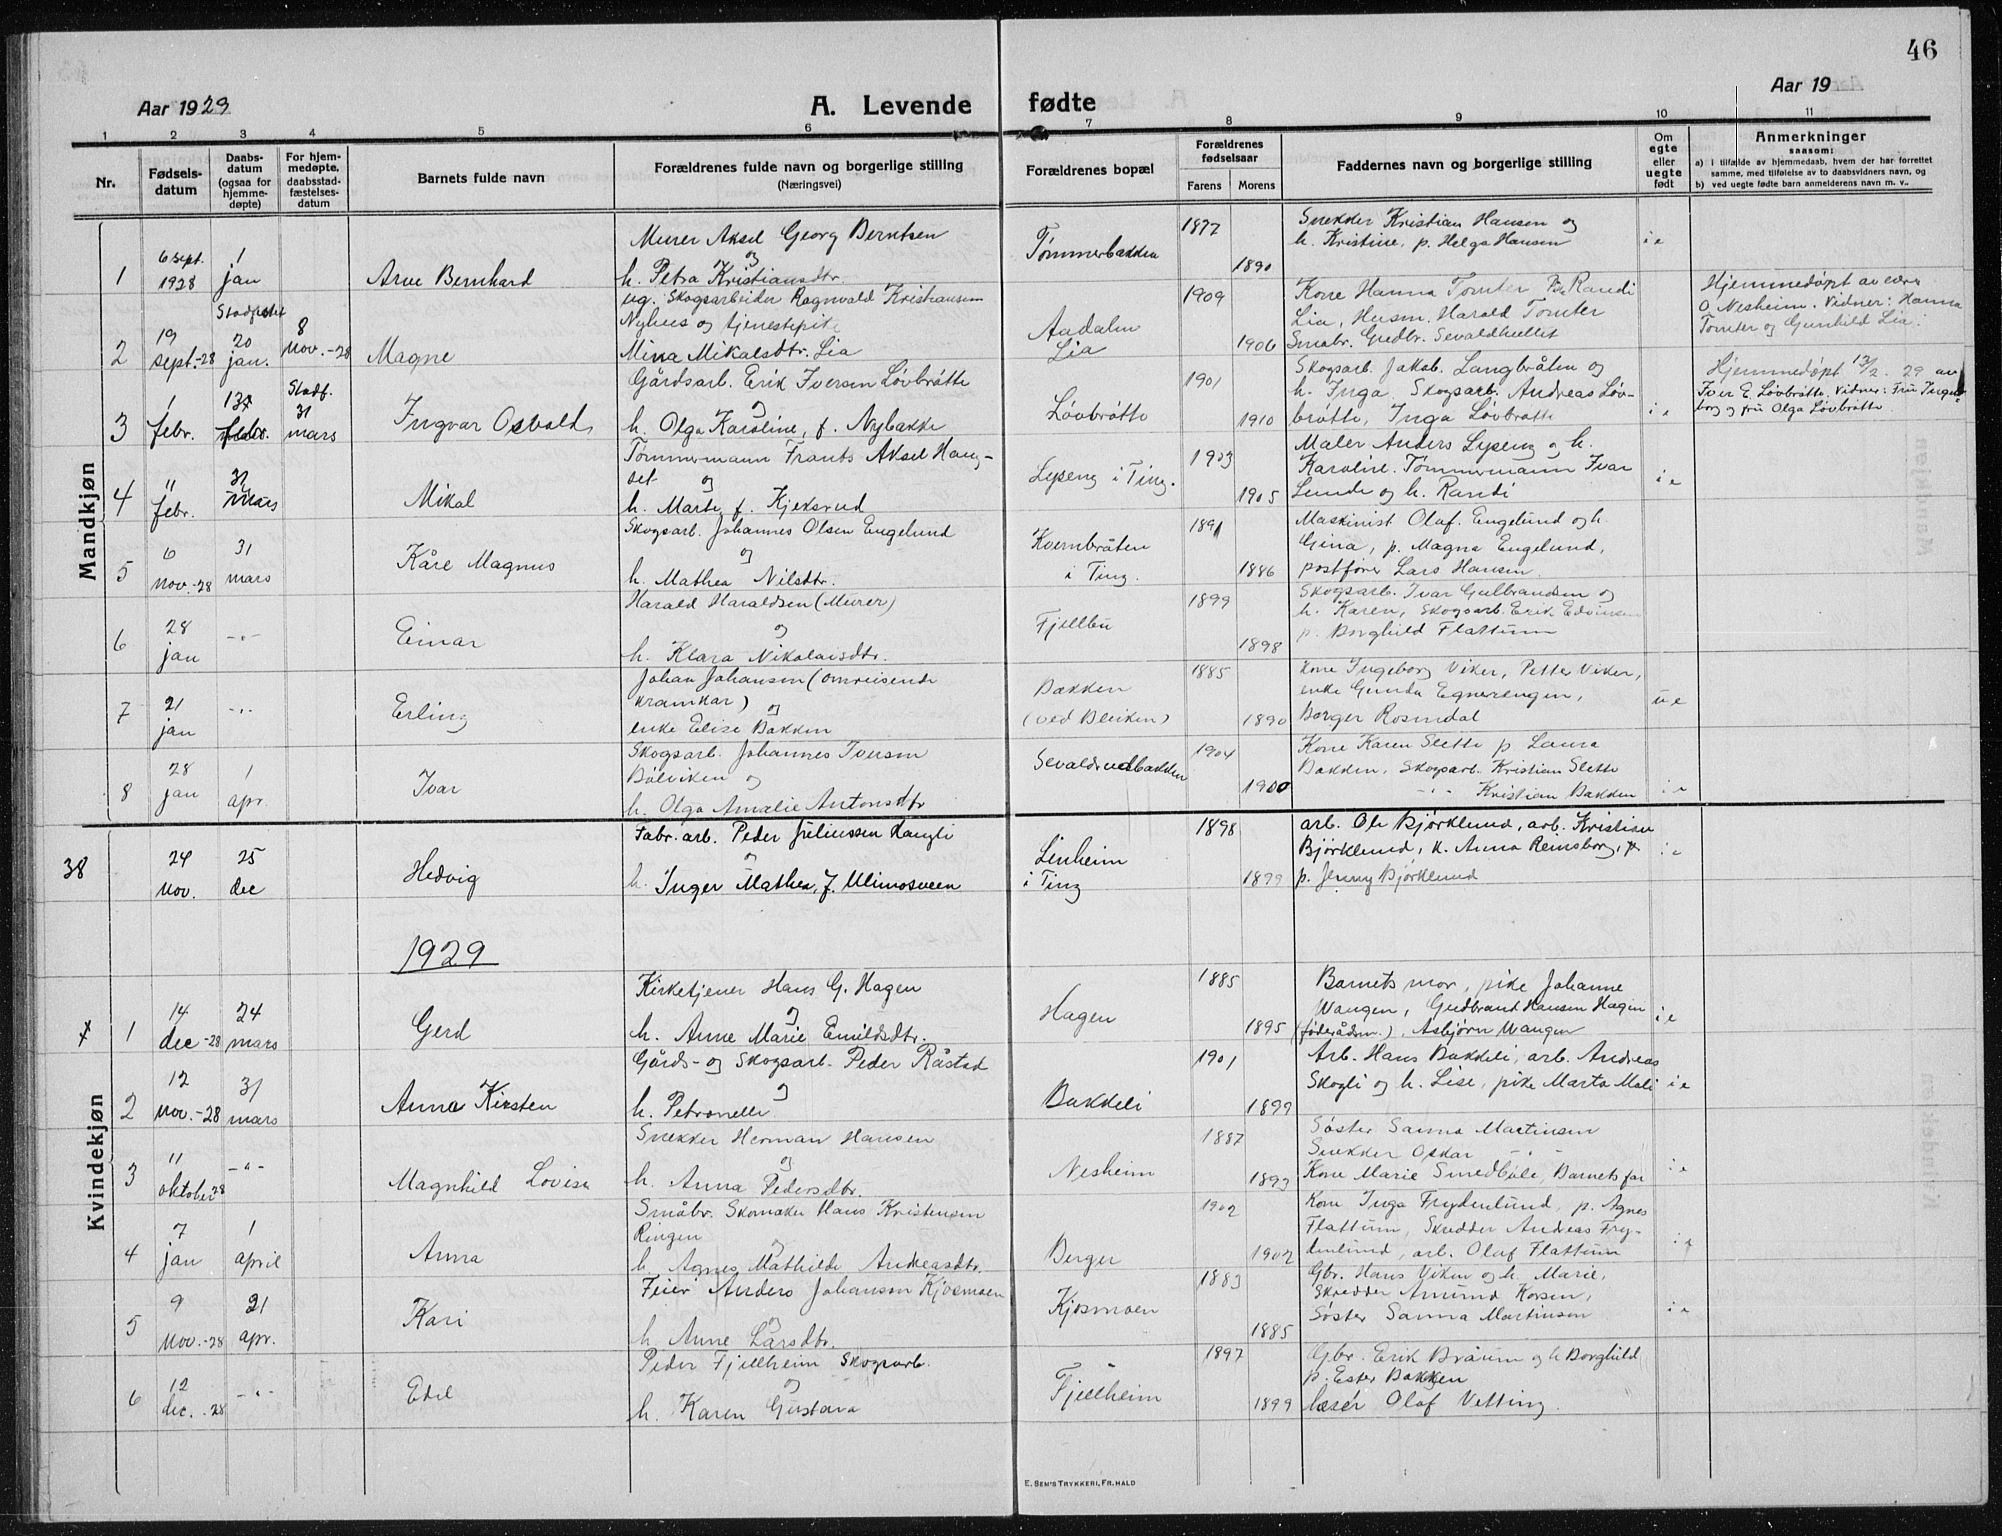 46
Aar 1929
A. Levende fødte
Aar 19
1 2 3 4 5 6 7 8 9 10 11
Nr.
Fødsels-
datum
Daabs-
datum
(ogsaa for
hjemme-
døpte)
For hjem-
medøpte,
daabsstad-
fæstelses-
datum
Barnets fulde navn
Forældrenes fulde navn og borgerlige stilling
(Næringsvei)
Forældrenes bopæl
Forældrenes
fødselsaar
Farens Morens
Faddernes navn og borgerlige stilling
Om
egte
eller
uegte
født
Anmerkninger
saasom:
a) i tilfælde av hjemmedaab, hvem der har forrettet
samme, med tilføielse av to daabsvidners navn, og
b) ved uegte fødte barn anmelderens navn m. v..
Mandkjøn
1
6 sept.
1928
1
jan
Arve Bernhard
Murer Aksel Georg Berntsen
og
h. Petra Kristiansdtr.
Tømmerbakken
1877
1890
Snekker Kristian Hansen og
h. Kristine, p. Helga Hansen
i e
2
19
sept.-28
Stadfestet
20
jan.
8
nov.-28
Magne
ug. Skogsarbeider Ragnvald Kristiansen
Nyhus og tjenestepike
Mina Mikalsdtr. Lia
Aadalen
Lia
1909
1906
Kone Hanna Tomter Randi
Lia, Husm. Harald Tomter
Småbr. Gudbr. Sevaldhullet
Hjemmedøpt av
O. Nesheim. Vidner: Hanna
Tomter og Gunhild Lia.
3
1
febr.
13
febr.
Stadf.
31
mars
Ingvar Osvald
Gårdsarb. Erik Iversen Løvbråtte
og
h. Olga Karoline, f. Nybakke
Løvbråtte
1901
1910
Skogsarb. Jakob Langbråten og
h. Inga, Skogsarb. Andreas Løv-
bråtte, Inga Løvbråtte
i e
Hjemmedøpt 13/2. 29 av
Iver E. Løvbråtte. Vidner: Fru Inge-
borg og fru Olga Løvbråtte
4
11
febr.
31
mars
Mikal
Tømmermann Frants Aksel Haug-
set og
h. Marte f. Kjeksrud
Lyseng i Ting.
1903
1905
Maler Anders Lyseng og h.
Karoline. Tømmermann Ivar
Lunde og h. Randi
i e
5
6
nov.-28
31
mars
Kåre Magnus
Skogsarb. Johannes Olsen Engelund
og
h. Mathea Nilsdtr.
Kvernbråten
i Ting.
1891
1886
Maskinist Olaf Engelund og h.
Gina, p. Magna Engelund,
postfører Lars Hansen
6
28
jan
-"-
Einar
Harald Haraldsen (Murer)
og
h. Klara Nikolaisdtr.
Fjellbu
1899
1898
Skogsarb. Ivar Gulbrandsen og
h. Karen, Skogsarb. Erik Edvinsen
p. Borghild Flattum
7
21
jan
-"-
Erling
Johan Johansen (omreisende
kramkar)
og
enke Elise Bakken
Bakken
(ved Bleiken)
1885
1890
Kone Ingeborg Viker, Petter Viker,
enke Gunda Egnerengen,
Borger Rosendal
u e
8
28
jan
1
apr.
Ivar
Skogsarb. Johannes Iversen
Bølviken og
h. Olga Amalie Antonsdtr
Sevaldrudbakken
1904
1900
Kone Karen Slette p. Laura
Bakken, Skogsarb. Kristian Slette
-"- Kristian Bakken
i e
Kvindekjøn
38
24
nov.
25
dec
Hedvig
Fabr. arb. Peder Juliussen Haugli
og
h. Inger Mathea, f. Ulimosveen
Linheim
i Ting
1898
1899
arb. Ole Bjørklund, arb. Kristian
Bjørklund, k. Anna Reinsborg, p.
p. Jenny Bjørklund
i e
1929
1
14
dec-28
24
mars
Gerd
Kirketjener Hans G. Hagen
og
h. Anne Marie Emildsdtr.
Hagen
1885
1895
Barnets mor, pike Johanne
Wangen, Gudbrand Hansen Hagen
(føderådsm.), Asbjørn Wangen
i e
2
12
nov.-28
31
mars
Anna Kirsten
Gårds- og Skogsarb. Peder Råstad
og
h. Petronelle
Bakkeli
1901
1899
Arb. Hans Bakkeli, arb. Andreas
Skogli og h. Lise, pike Marta Moli
i e
3
11
oktober 28
-"-
Magnhild Lovise
Snekker Herman Hansen
og
h. Anna Pedersdtr.
Nesheim
1887
1893
Søster Sanna Martinsen
Snekker Oskar -"-
Kone Marie Smedbøle, Barnets far
i e
4
7
jan
1
april
Anna
Småbr. Skomaker Hans Kristensen
Ringen
og
h. Agnes Mathilde Andreasdtr.
Berger
1902
1902
Kone Inga Frydenlund, p. Agnes
Flattum, Skredder Andreas Fry-
denlund, arb. Olaf Flattum
i e
5
9
nov.-28
21
apr.
Kari
Feier Anders Johansen Kjosmoen
og
h. Anne Larsdtr.
Kjosmoen
1883
1885
Gbr. Hans Viken og h. Marie,
Skredder Amund Korsen,
Søster Sanna Martinsen
i e
6
12
dec.-28
-"-
Edel
Peder Fjellheim Skogsarb.
og
h. Karen Gustava
Fjellheim
1897
1899
Gbr. Erik Bråum og h Borghild
p. Ester Bakken
læser Olaf Vetting.
E. SEM'S TRYKKERI, FR.HALD